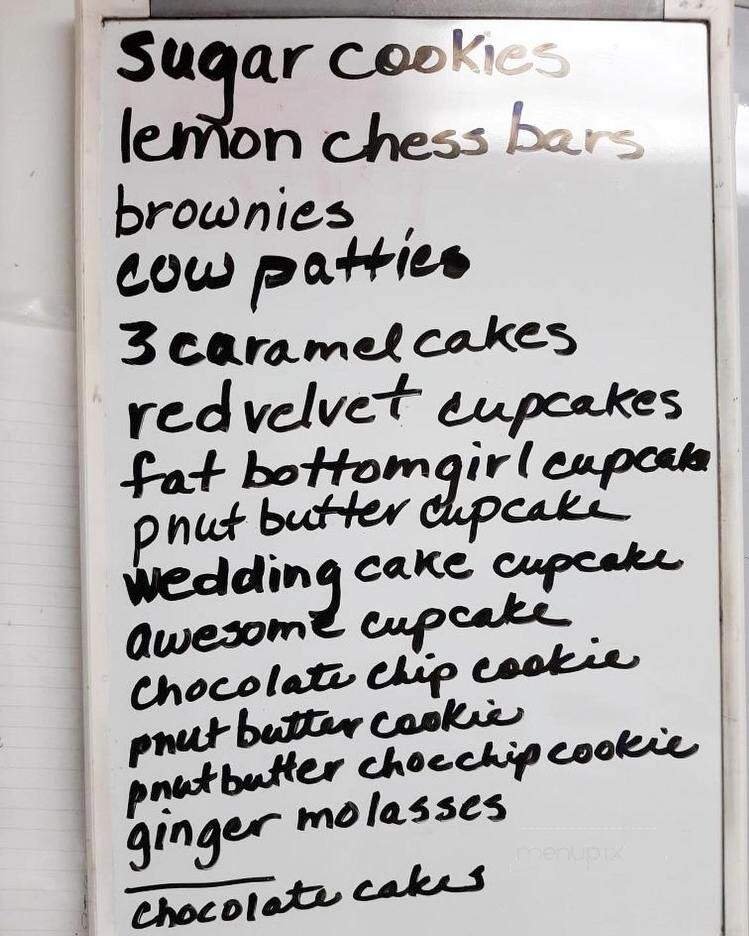 sugar cookies
lemon chess bars
brownies
cow patties
3 caramel cakes
red velvet cupcakes
fat bottom girl cupcake
pnut butter cupcake
wedding cake cupcake
awesome cupcake
chocolate chip cookie
pnut butter cookie
pnut butter choc chip cookie
ginger molasses
menupix
chocolate cakes